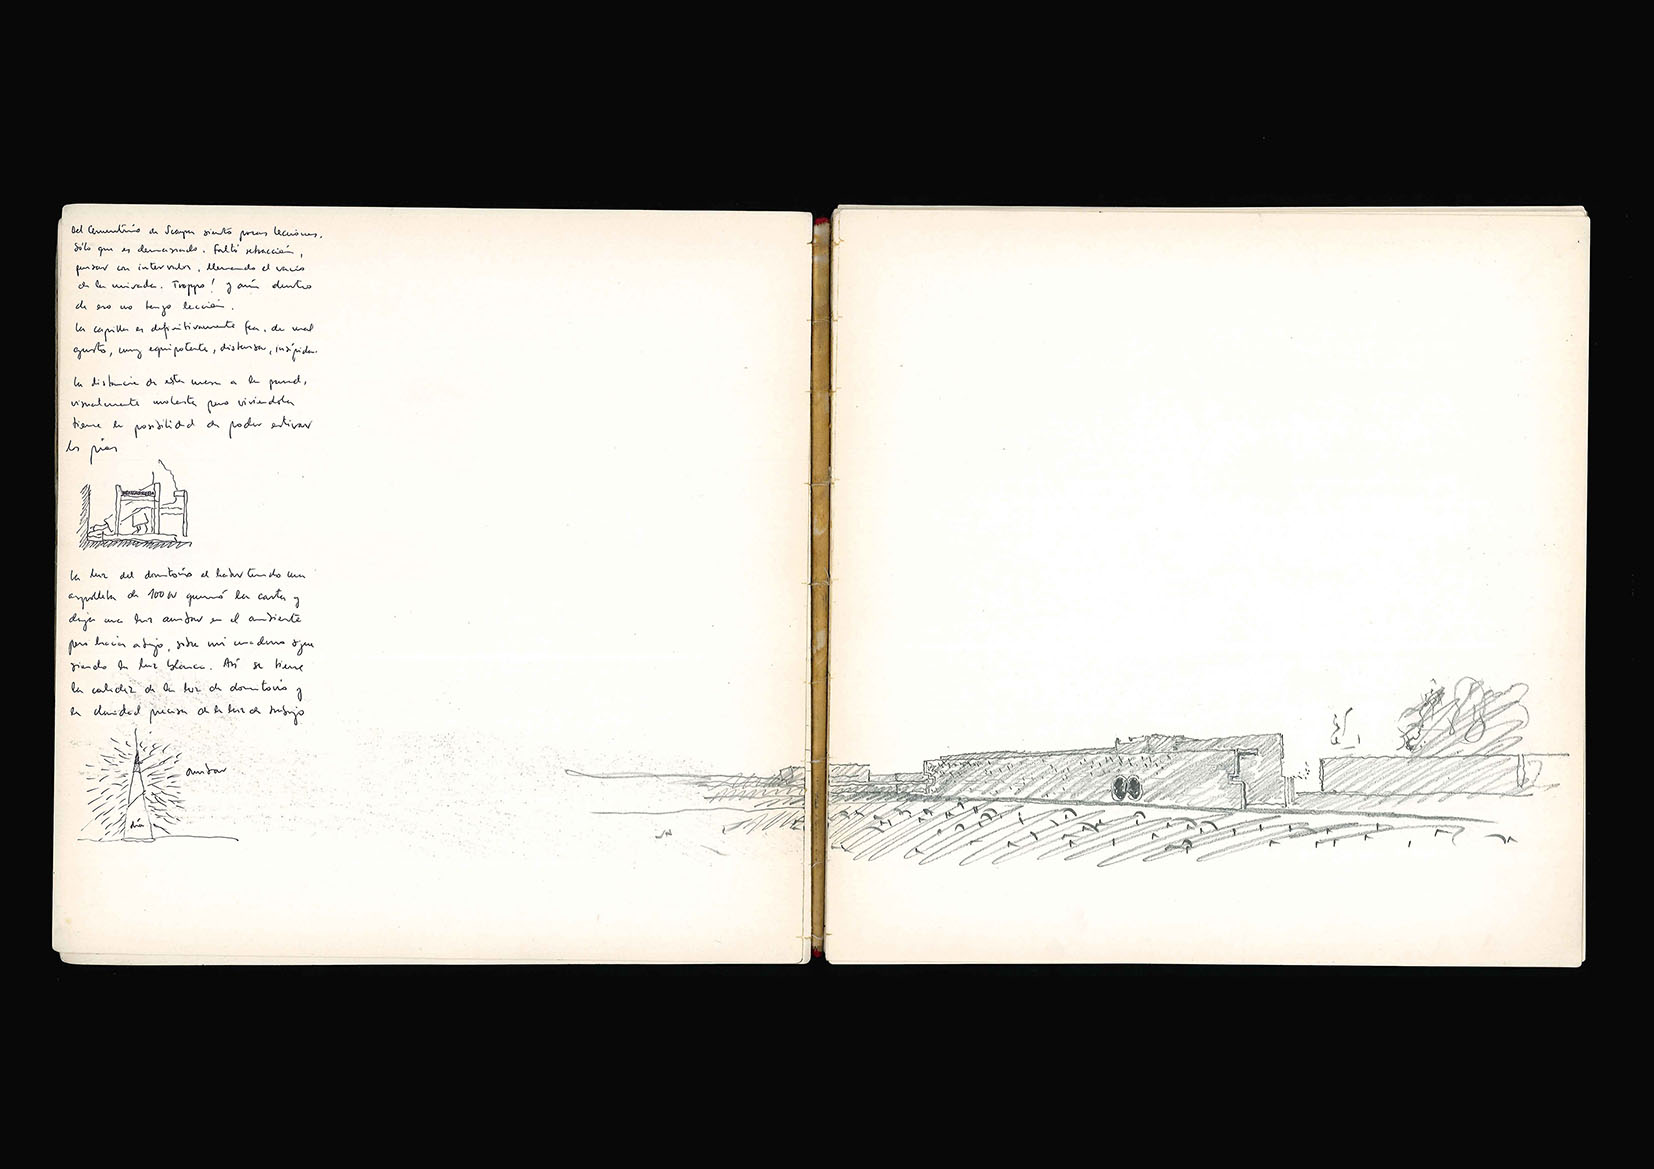 del Cementerio de Scarpa siento pocas lecciones.
Sólo que es demasiado. Faltó retracción,
pensar con intervalos, llenando el vacío
de la mirada. Troppo! y aún dentro
de eso no tengo lección.
La capilla es definitivamente fea, de mal
gusto, muy equipotente, distensa, insípida.
La distancia de esta mesa a la pared,
visualmente molesta pero viviéndola
tiene la posibilidad de poder estirar
los pies
La luz del dormitorio al haber tenido una
ampolleta de 100 W quemó la
deja una luz ámbar en el ambiente
pero hacia abajo, sobre mi cuaderno sigue
siendo la luz blanca. Así se tiene
la calidez de la luz de dormitorio y
la claridad precisa de la luz de trabajo
ámbar
día